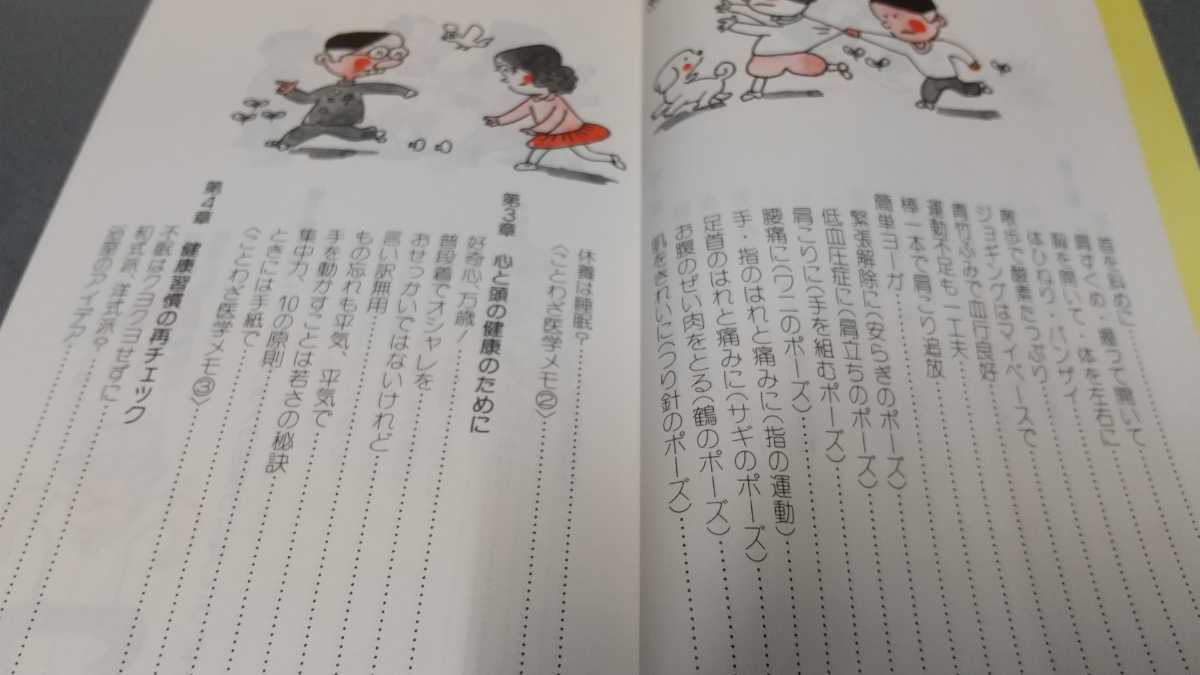 首を斜めに
肩すくめ・握って開いて
胸を開いて・体を左右に
体ひねり・バンザイ
散歩で酸素たっぷり
ジョギングはマイペースで
青竹ふみで血行良好
運動不足も一工夫
棒一本で肩こり追放
簡単ヨーガ
緊張解除に〈安らぎのポーズ〉
低血圧症に〈肩立ちのポーズ〉
肩こりに〈手を組むポーズ〉
腰痛に〈ワニのポーズ〉
手・指のはれと痛みに〈指の運動〉
足首のはれと痛みに〈サギのポーズ〉
お腹のぜい肉をとる〈鶴のポーズ〉
肌をきれいに〈つり針のポーズ〉
休養は睡眠？
〈ことわざ医学メモ②〉
第3章 心と頭の健康のために
好奇心、万歳！
普段着でオシャレを
おせっかいではないけれど
言い訳無用
もの忘れも平気、平気で
手を動かすことは若さの秘訣
集中力、10の原則
ときには手紙で
〈ことわざ医学メモ③〉
第4章 健康習慣の再チェック
不眠はクヨクヨせずに
和式派、洋式派？
浴室のアイデア